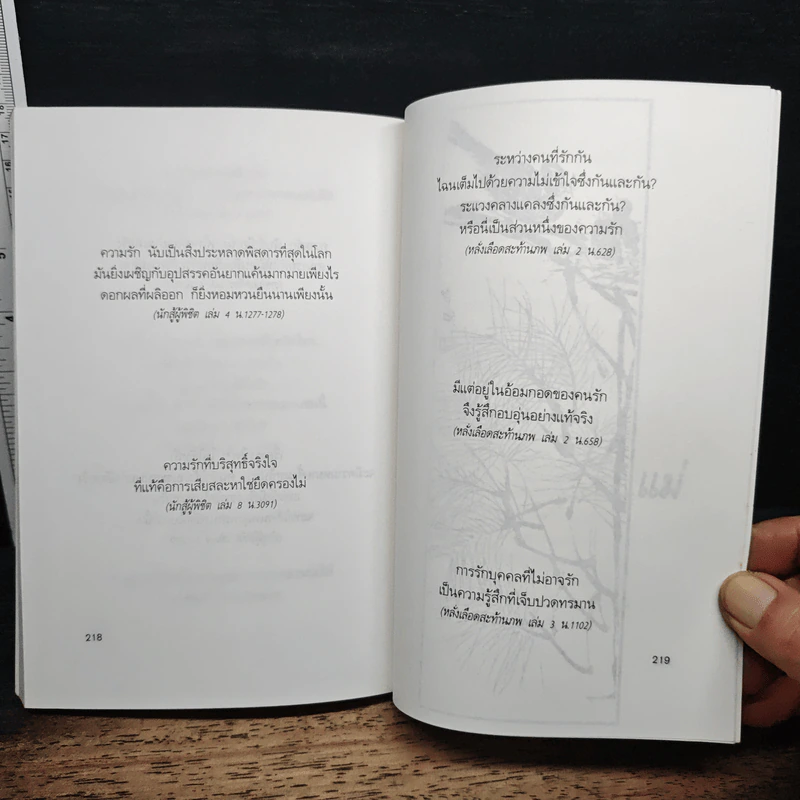 ความรัก นับเป็นสิ่งประหลาดพิสดารที่สุดในโลก
มันยิ่งเผชิญกับอุปสรรคอันยากแค้นมากมายเพียงไร
ดอกผลที่ผลิออก ก็ยิ่งหอมหวนยืนนานเพียงนั้น
(นักสู้ผู้พิชิต เล่ม 4 น.1277-1278)
ความรักที่บริสุทธิ์จริงใจ
ที่แท้คือการเสียสละหาใช่ยึดครองไม่
(นักสู้ผู้พิชิต เล่ม 8 น.3091)
218
ระหว่างคนที่รักกัน
ไฉนเต็มไปด้วยความไม่เข้าใจซึ่งกันและกัน?
ระแวงคลางแคลงซึ่งกันและกัน?
หรือนี่เป็นส่วนหนึ่งของความรัก
(หลั่งเลือดสะท้านภพ เล่ม 2 น.628)
มีแต่อยู่ในอ้อมกอดของคนรัก
จึงรู้สึกอบอุ่นอย่างแท้จริง
(หลั่งเลือดสะท้านภพ เล่ม 2 น.658)
การรักบุคคลที่ไม่อาจรัก
เป็นความรู้สึกที่เจ็บปวดทรมาน
(หลั่งเลือดสะท้านภพ เล่ม 3 น.1102)
219